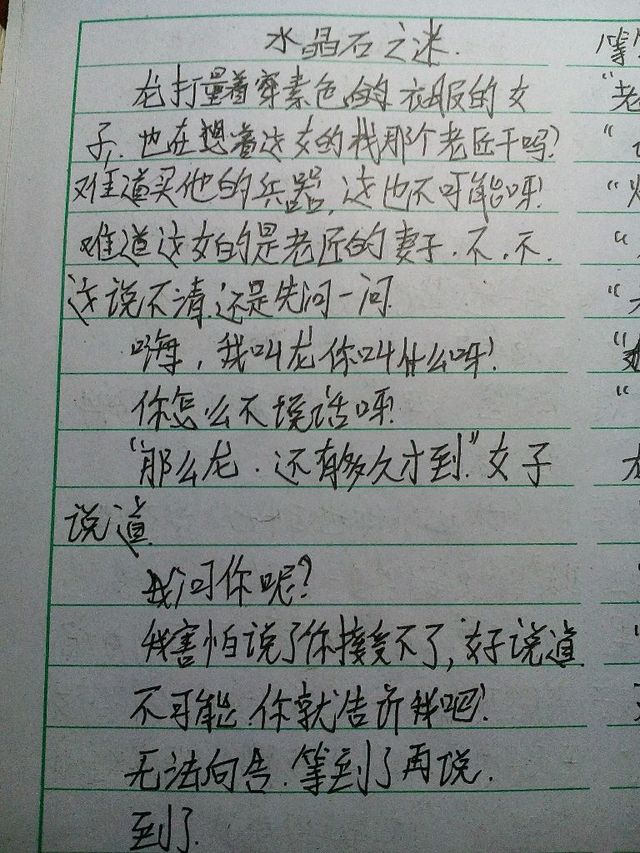 水晶石之迷.
龙打量着穿素色的衣服的女
子,也在想着这女的找那个老匠干吗?
难道买他的兵器,这也不可能呀!
难道这女的是老匠的妻子.不.不.
这说不清.还是先问一问.
嗨,我叫龙你叫什么呀!
你怎么不说话呀!
"那么龙.还有多久才到."女子
说道.
我问你呢?
我害怕说了你接受不了,女子说道.
不可能.你就告诉我吧!
无法向告.等到了再说.
到了.
等
"老
"
"
"
"
"
"